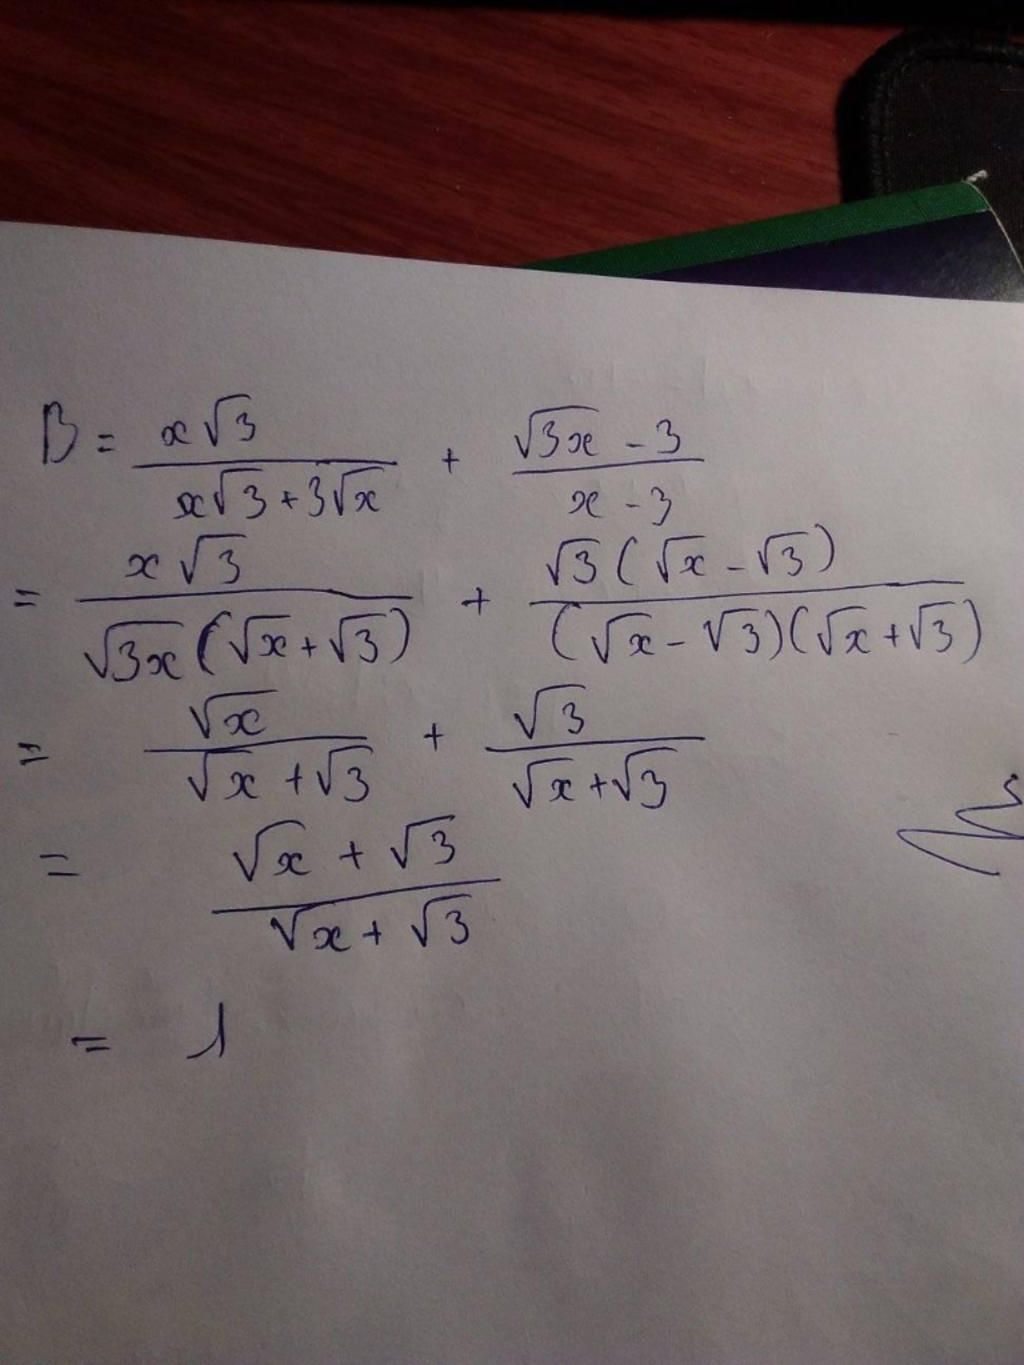 B = x√3 / (x√3 + 3√x) + (√3x - 3) / (x - 3)
= x√3 / (√3x (√x + √3)) + √3 (√x - √3) / ((√x - √3)(√x + √3))
= √x / (√x + √3) + √3 / (√x + √3)
= (√x + √3) / (√x + √3)
= 1